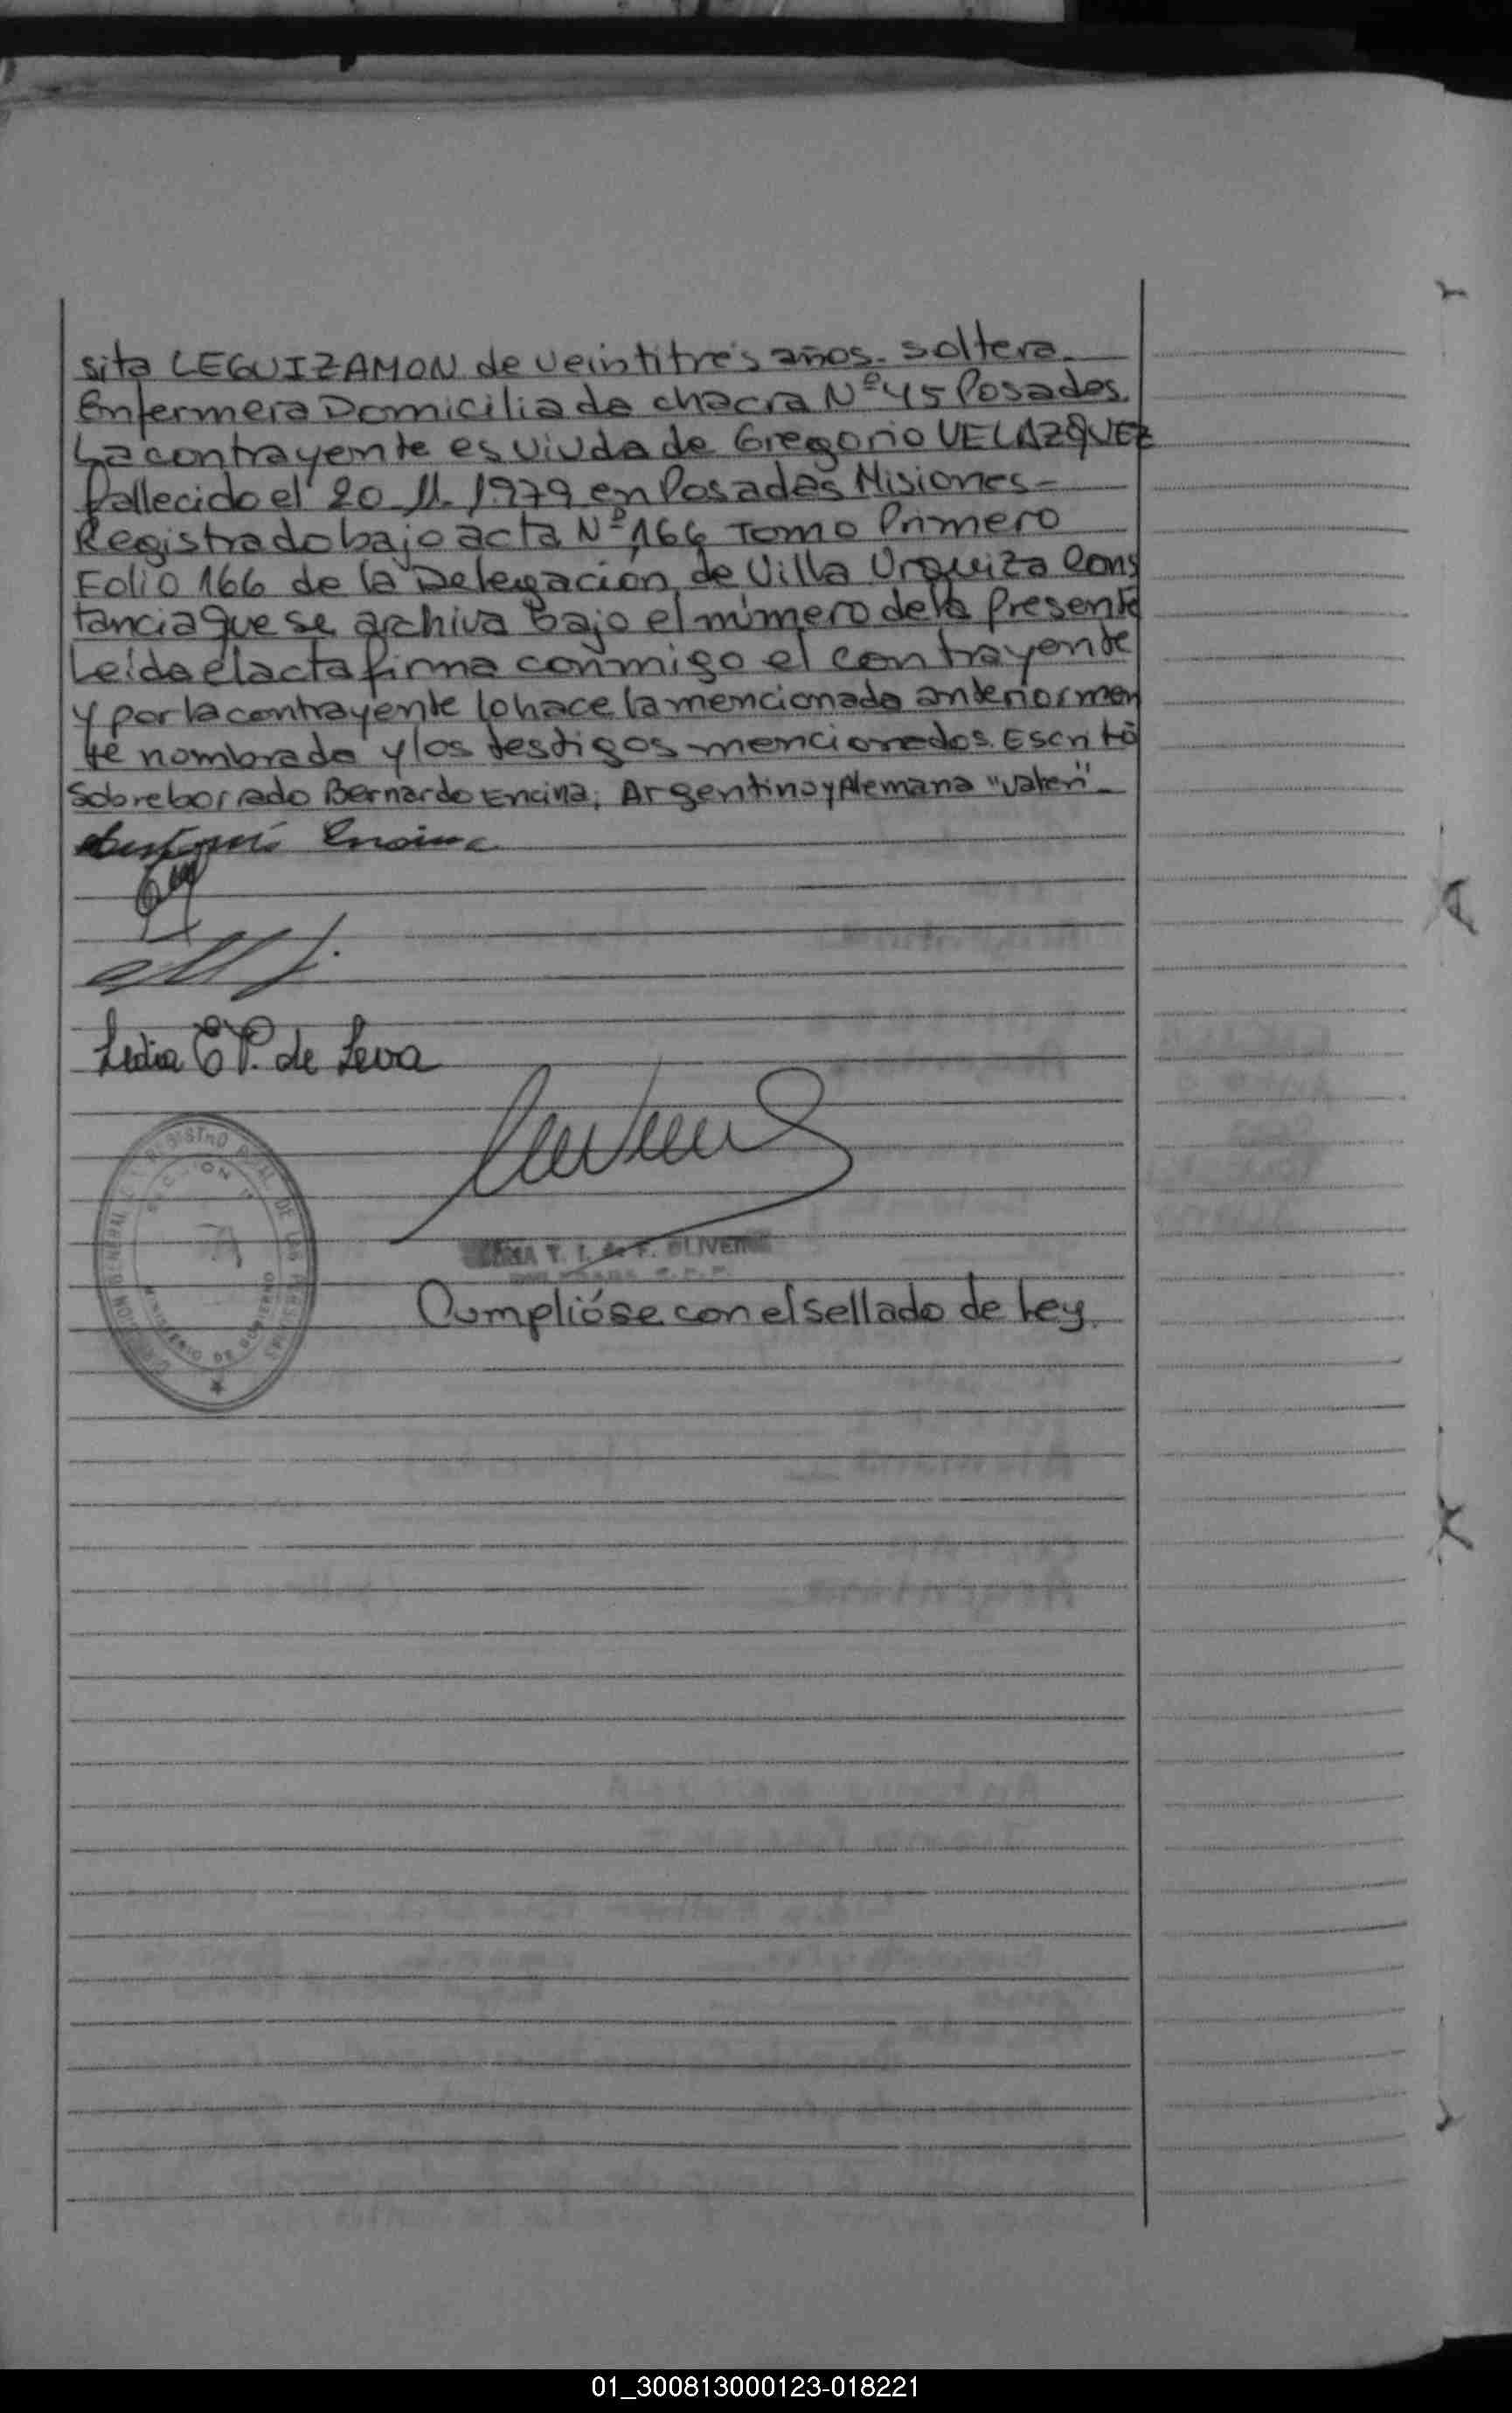 sita LEGUIZAMON de veintitrés años. soltera
Enfermera Domiciliada chacra Nº 45 Posadas.
La contrayente es viuda de Gregorio VELAZQUEZ
fallecido el 20.11.1979 en Posadas Misiones-
Registrado bajo acta Nº 166 Tomo Primero
Folio 166 de la Delegación de Villa Urquiza Cons
tancia que se archiva bajo el número de la Presente
Leída el acta firma conmigo el contrayente
y por la contrayente lo hace la mencionada anteriormen
te nombrada y los testigos mencionados. Escrito
Sobreborrado Bernardo Encina, Argentino y Alemana "valen"
Encina
Lidia E P. de Leva
T. I. de F. OLIVERA
Cumplióse con el sellado de Ley.
REGISTRO DE LAS PERSONAS
MINISTERIO DE GOBIERNO
01_300813000123-018221